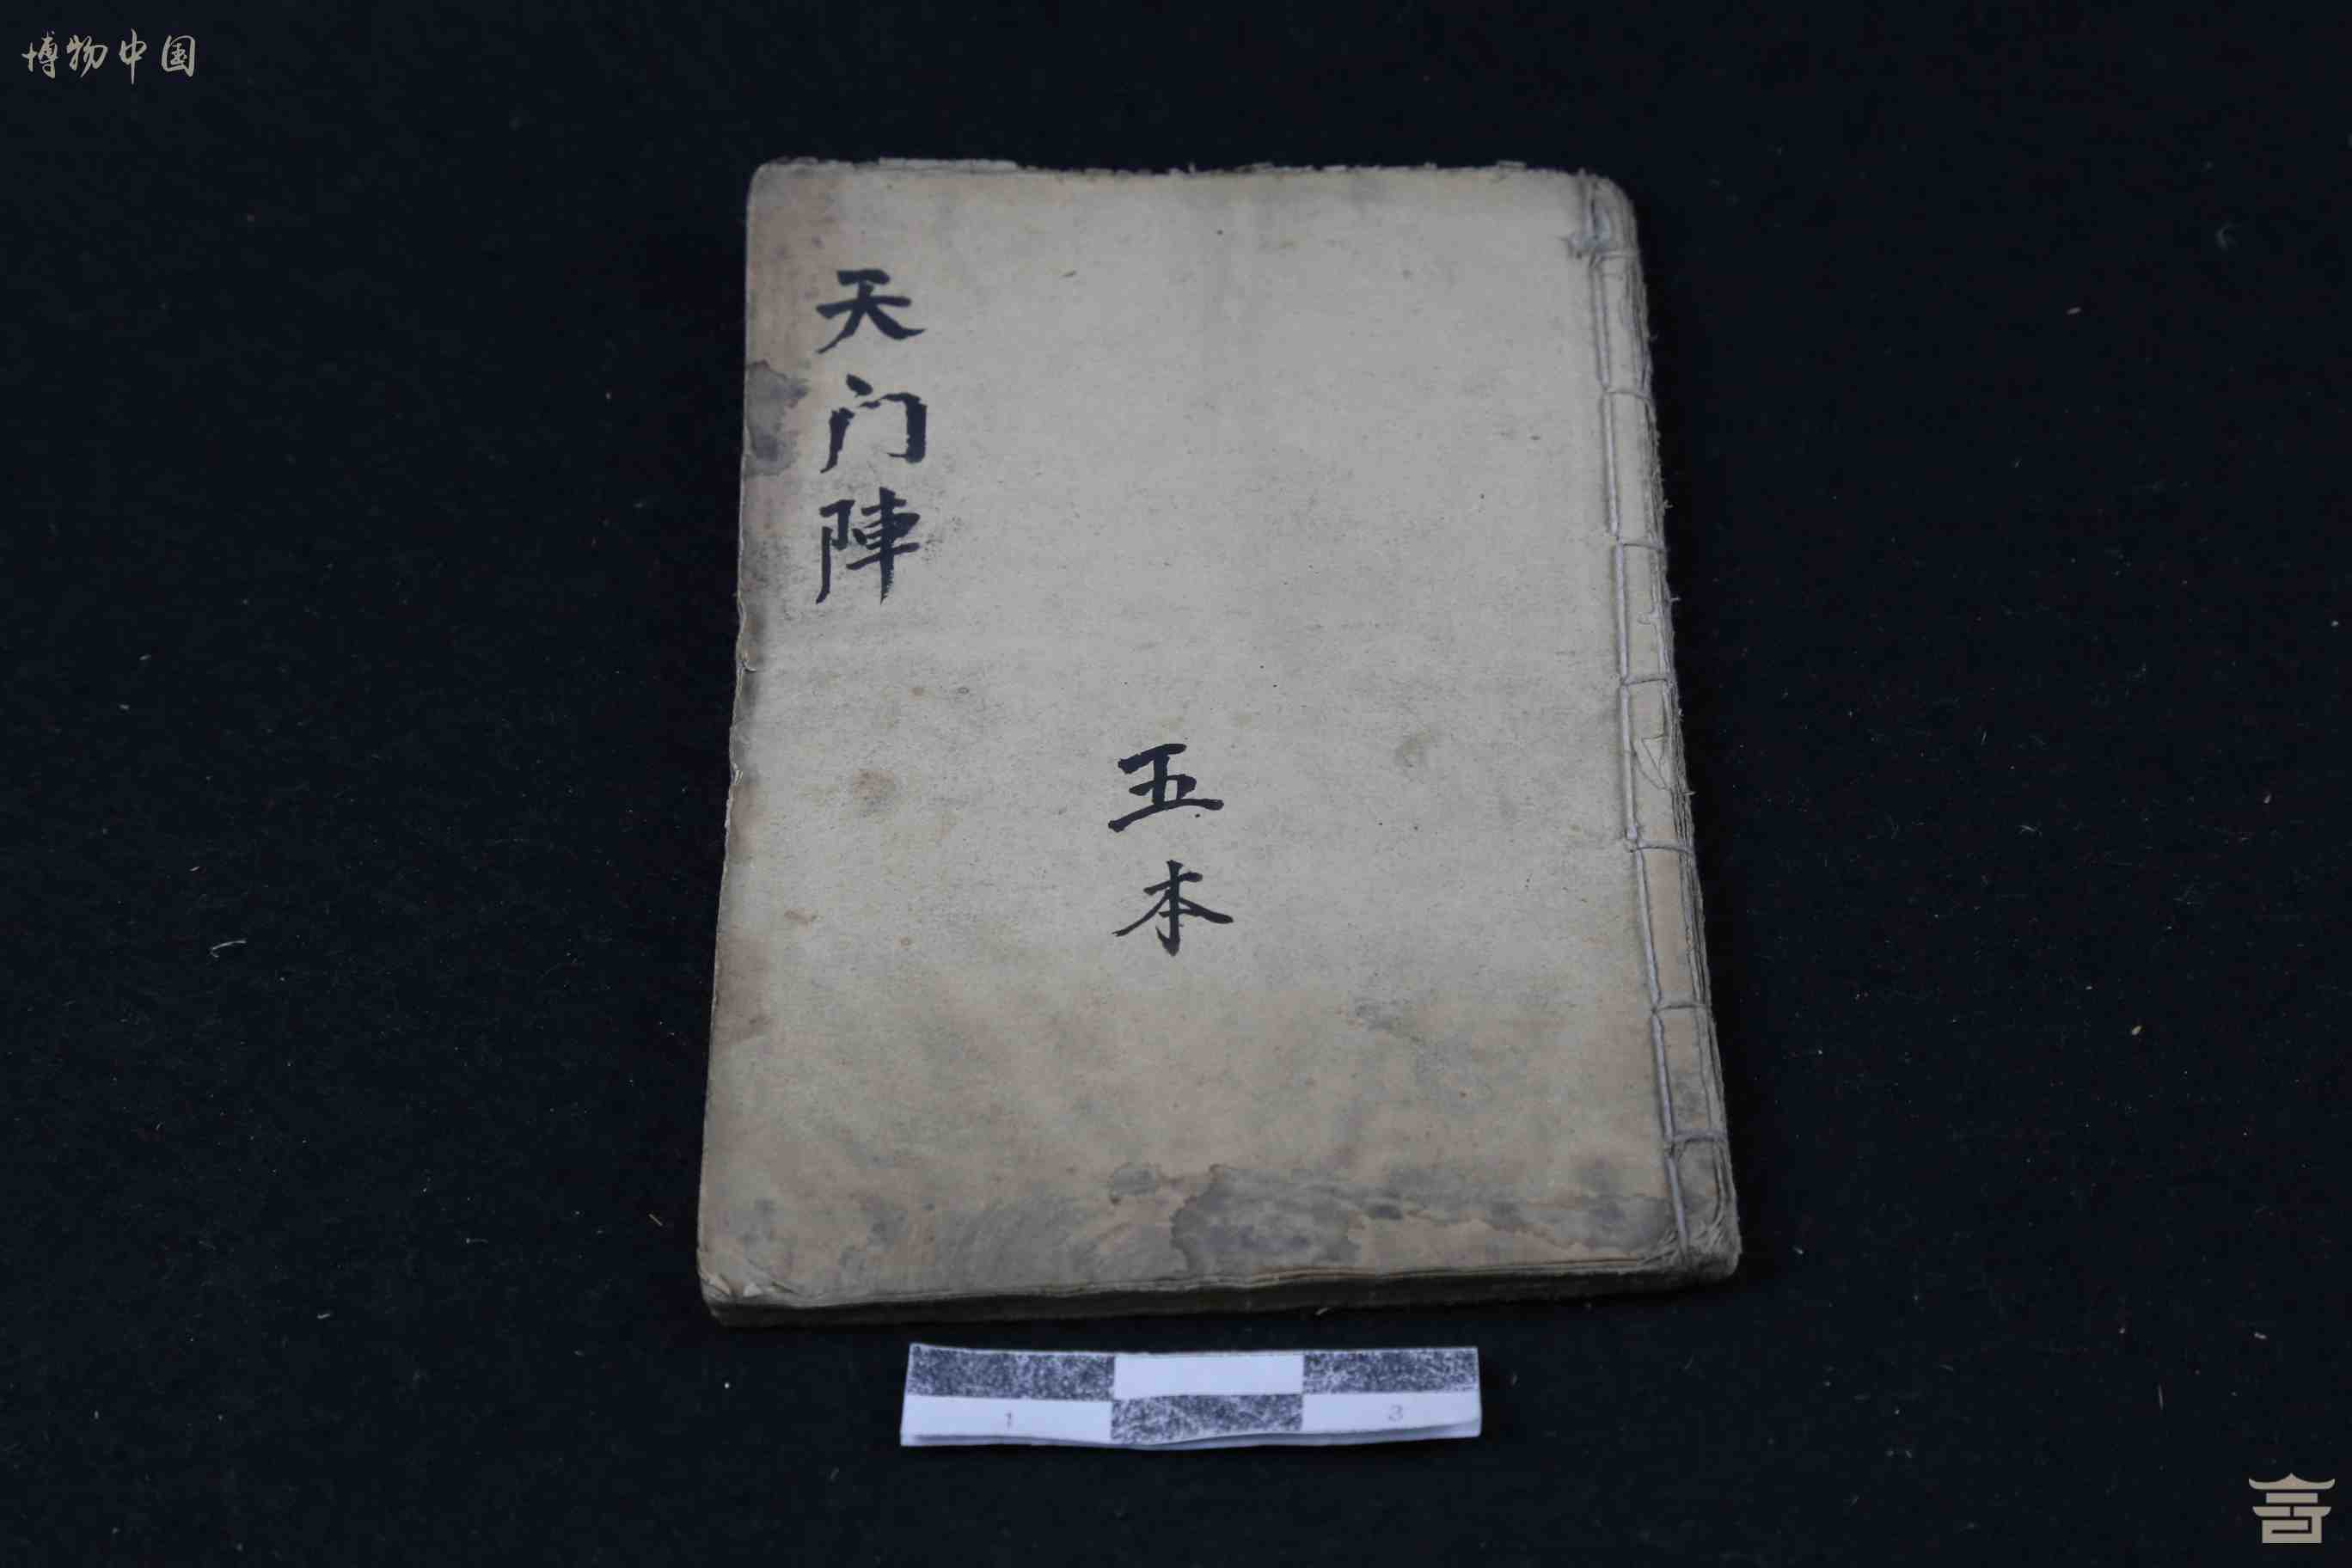 博物中国
天门陣
五本
1 3